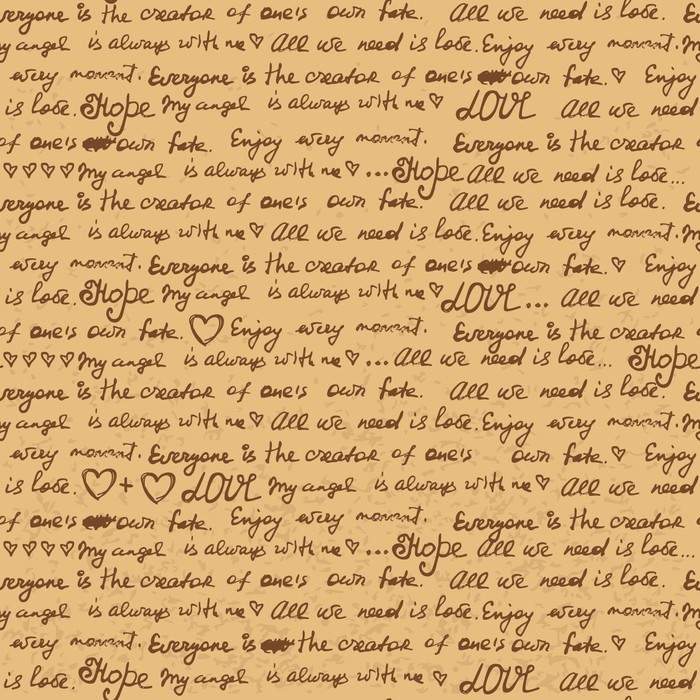 veryone is the creator of one's own fate. All we need is lose. Ev
my angel is always with me♡ All we need is lose. Enjoy every moment. M
every moment. Everyone is the creator of one's own fate.♡ Enjoy
is lose. Hope My angel is always with me♡ LOVE All we need
of one's own fate. Enjoy every moment. Everyone is the creator
♡♡♡♡ My angel is always with me♡... Hope All we need is lose...
veryone is the creator of one's own fate. All we need is lose. Ev
my angel is always with me♡ All we need is lose. Enjoy every moment. M
every moment. Everyone is the creator of one's own fate.♡ Enjoy
is lose. Hope My angel is always with me♡ LOVE... All we need
of one's own fate. ♡ Enjoy every moment. Everyone is the creator
♡♡♡♡ My angel is always with me♡... All we need is lose... Hope
veryone is the creator of one's own fate. All we need is lose. Ev
my angel is always with me♡ All we need is lose. Enjoy every moment. M
every moment. Everyone is the creator of one's own fate.♡ Enjoy
is lose. ♡+♡ LOVE My angel is always with me♡ All we need
of one's own fate. Enjoy every moment. Everyone is the creator
♡♡♡♡ My angel is always with me♡... Hope All we need is lose...
veryone is the creator of one's own fate. All we need is lose. Ev
my angel is always with me♡ All we need is lose. Enjoy every moment. M
every moment. Everyone is the creator of one's own fate.♡ Enjoy
is lose. Hope My angel is always with me♡ LOVE All we need